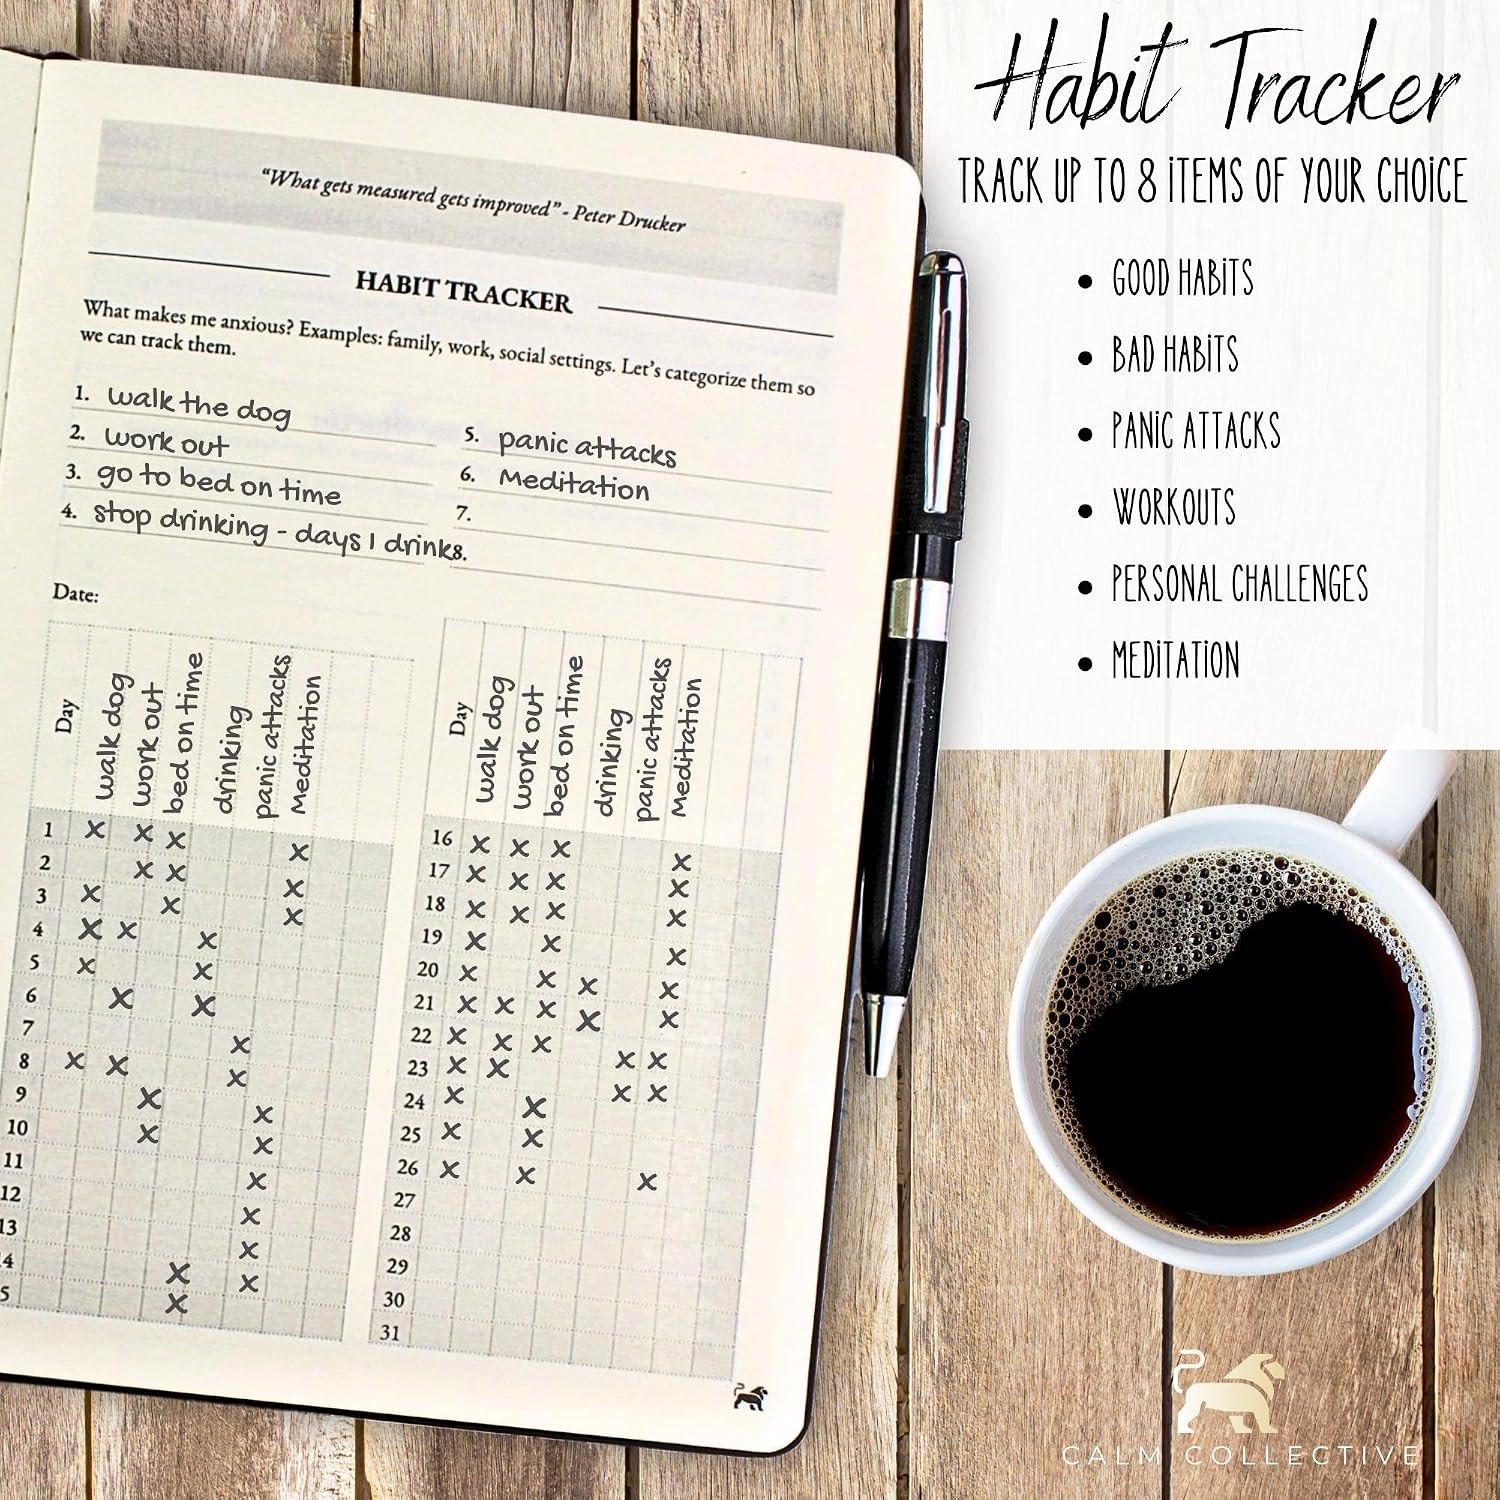 "What gets measured gets improved" - Peter Drucker
HABIT TRACKER
What makes me anxious? Examples: family, work, social settings. Let's categorize them so
we can track them.
1. walk the dog
2. work out
3. go to bed on time
4. stop drinking - days I drink
5. panic attacks
6. Meditation
7.
8.
Date:
Day walk dog work out bed on time drinking panic attacks Meditation
1 x x x x
2 x x x
3 x x x
4 x x x
5 x x
6 x x
7 x
8 x x x
9 x x
10 x x
11 x
12 x
13 x
4 x x
5 x
Day walk dog work out bed on time drinking panic attacks Meditation
16 x x x x
17 x x x x
18 x x x x
19 x x x
20 x x x x
21 x x x x x
22 x x x x x
23 x x x x
24 x x
25 x x
26 x x x
27
28
29
30
31
Habit Tracker
TRACK UP TO 8 ITEMS OF YOUR CHOICE
• GOOD HABITS
• BAD HABITS
• PANIC ATTACKS
• WORKOUTS
• PERSONAL CHALLENGES
• MEDITATION
CALM COLLECTIVE